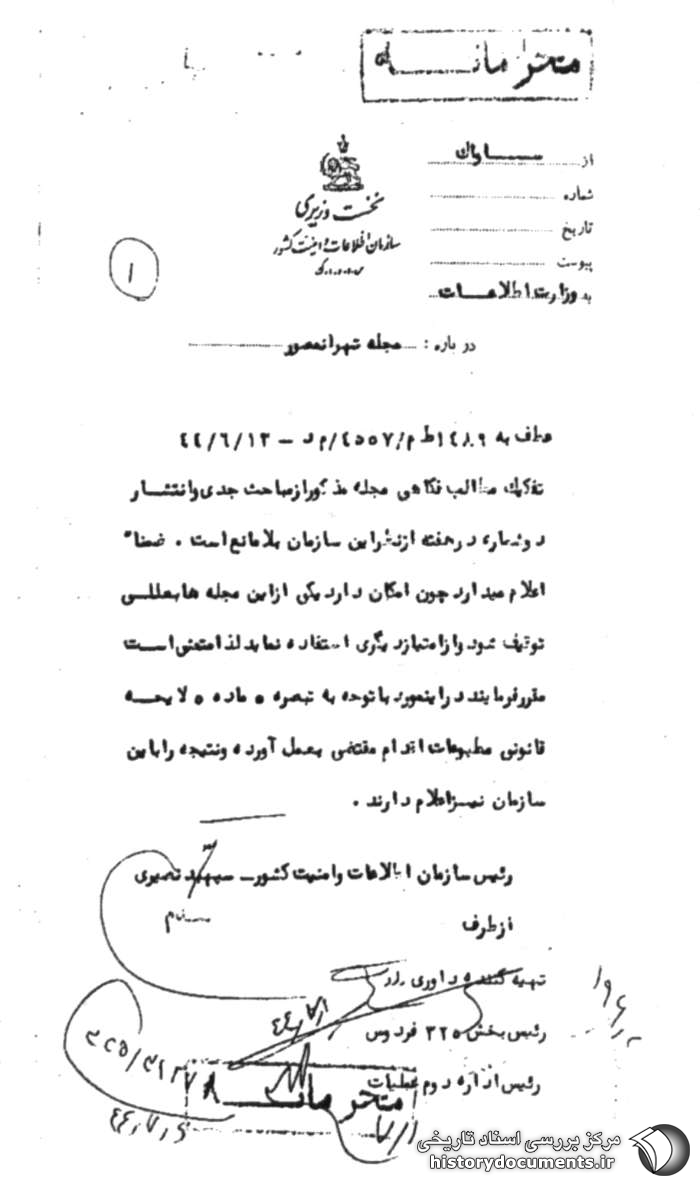 محرمانه
از ساواک
نخست وزیری
شماره
سازمان اطلاعات و امنیت کشور
تاریخ
پیوست
۱
به وزارت اطلاعات
درباره : مجله تهرانمصور
عطف به ۱۴۸۹ط م/۴۵۵۷/م د – ۴۴/۶/۱۳
تفکیک مطالب فکاهی مجله مذکور از مباحث جدی و انتشار
دو شماره در هفته از نظر این سازمان بلامانع است . ضمنا"
اعلام میدارد چون امکان دارد یکی از این مجله ها بعللی
توقیف شود و از امتیاز دیگری استفاده نماید لذا متمنی است
مقرر فرمایند در اینمورد با توجه به تبصره ۵ ماده ۵ لایحه
قانونی مطبوعات اقدام مقتضی بعمل آورده و نتیجه را باین
سازمان نیز اعلام دارند .
رئیس سازمان اطلاعات و امنیت کشور – سپهبد نصیری
از طرف
تهیه کننده داوری راد
رئیس بخش ۳۲۵ فردوس
۴۴/۷/۱
رئیس اداره دوم عملیات
محرمانه
۷/۱
مرکز بررسی اسناد تاریخی
historydocuments.ir